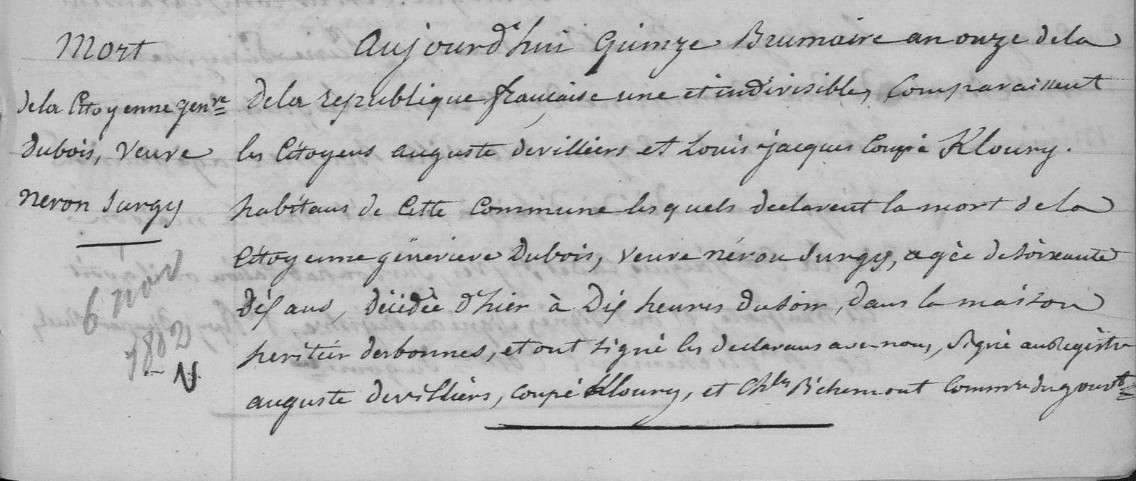 Mort
de la Citoyenne genve
Dubois, Veuve
neron Surgy
6 nov
1802
N
Aujourd'hui Quinze Brumaire an onze de la
de la republique francaise une et indivisible, Comparaissent
les Citoyens auguste devilliers et Louis jacques Coupé Kloury.
habitans de Cette Commune lesquels declarent la mort de la
Citoyenne génevieve Dubois, veuve néron Surgy, agée de soixante
dix ans, décédée d'hier à Dix heures du soir, dans la maison
heritier derbonnes, et ont signé les declarans avec nous, Signé au Registre
auguste devilliers, Coupé Kloury, et Chles Bichemont Commre du gouvt